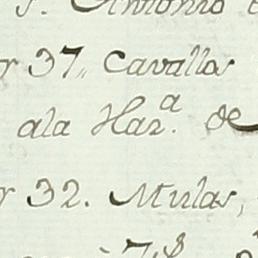 S. Antonio
r 37,, Cavallos
ala Haz.ª de
r 32. Mulas,